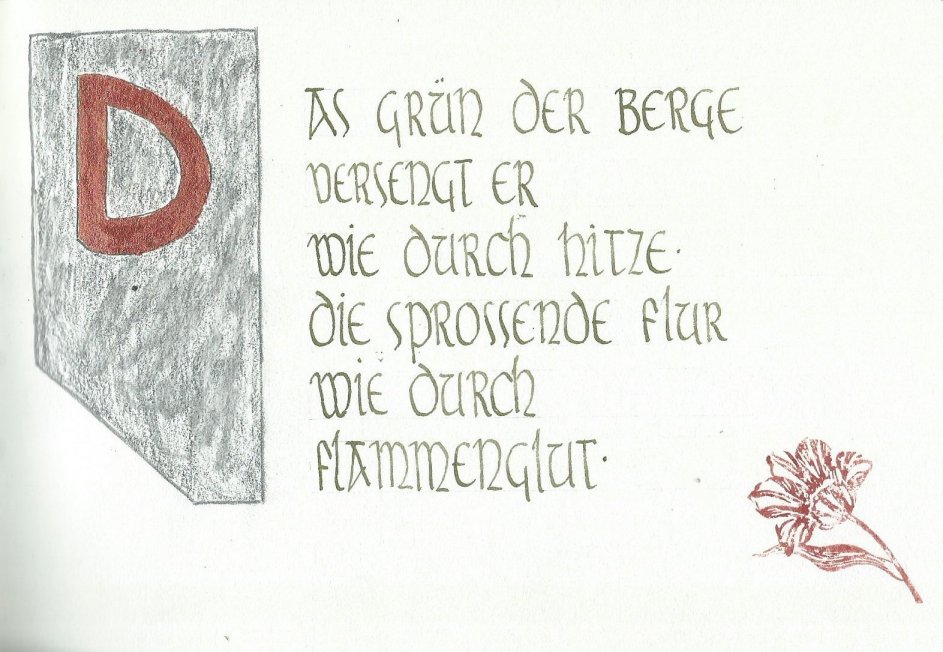 DAS GRÜN DER BERGE
VERSENGT ER
WIE DURCH HITZE·
DIE SPROSSENDE FLUR
WIE DURCH
FLAMMENGLUT·